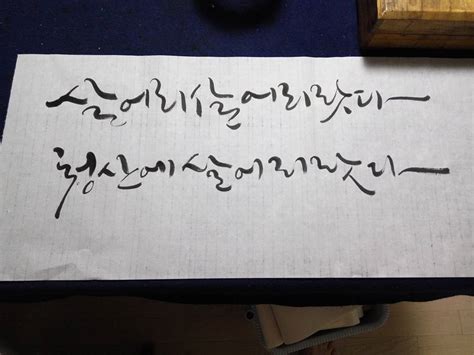 살어리살어리랏다
청산에살어리랏다